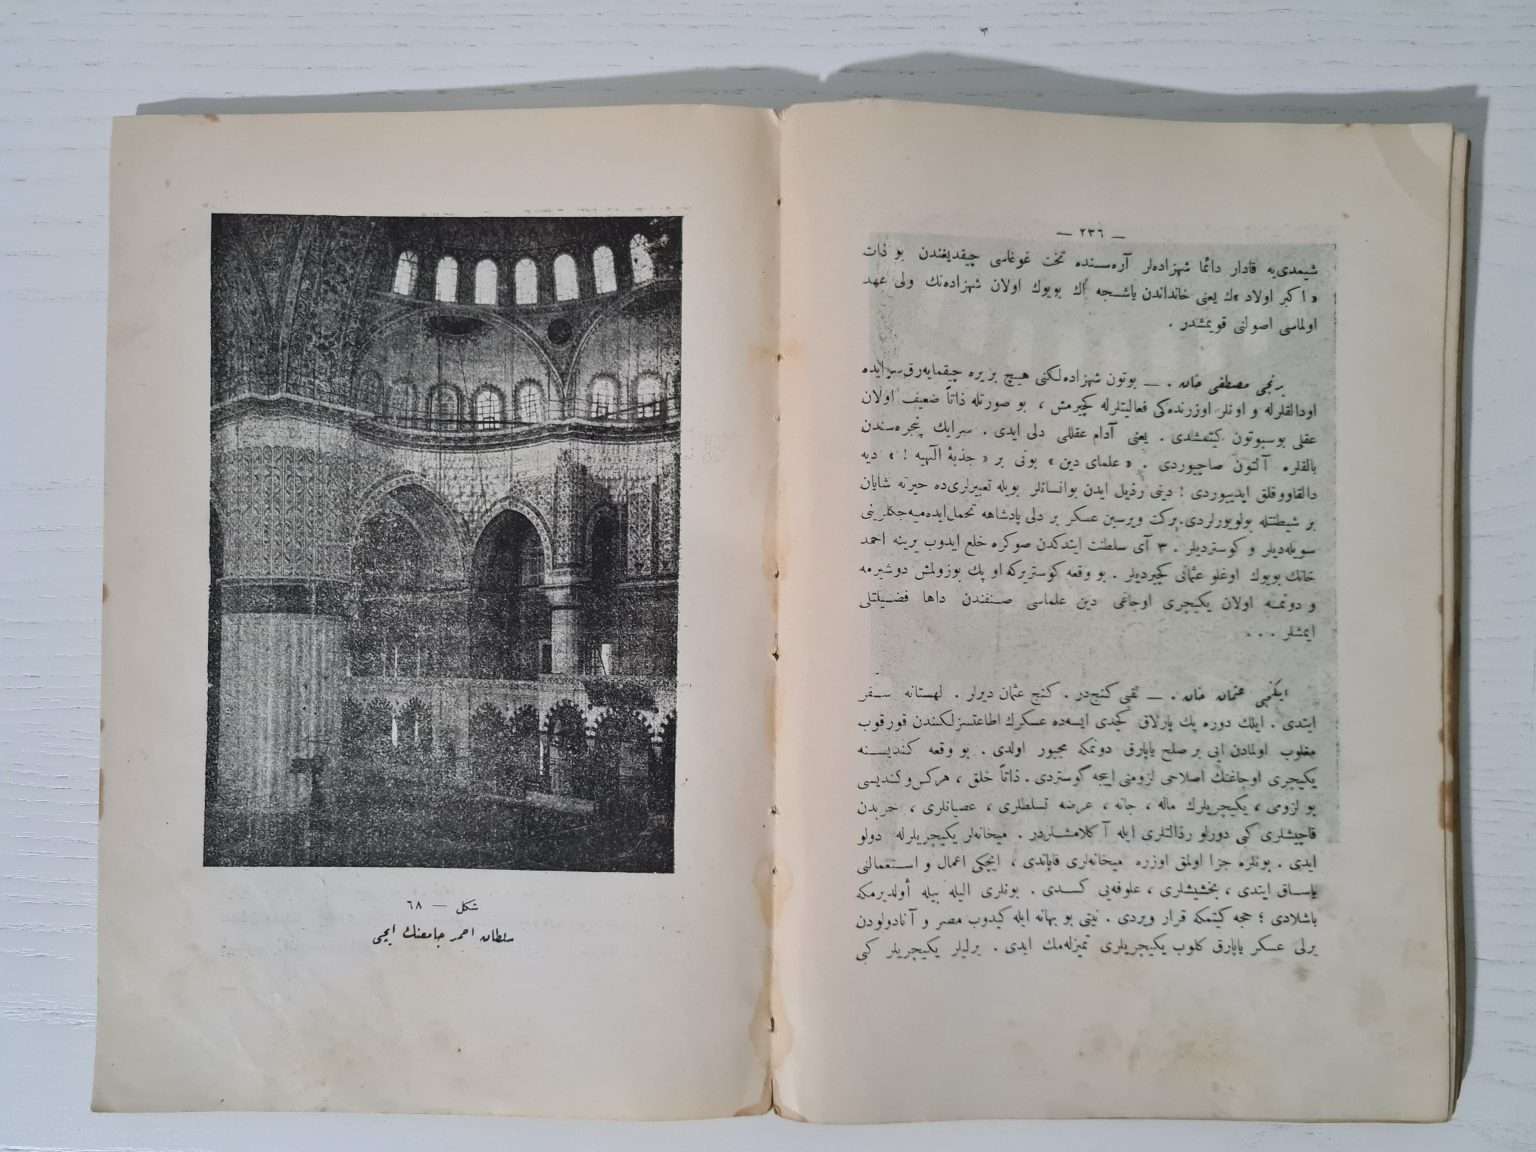 — ٢٣٦ —
شیمدی‌یه قادار دائما شهزاده‌لر آره‌سـنده تخت غوغاسی چیقدیغندن بو ذات
« اکبر اولاد »ك یعنی خانداندن یاشـجه اڭ بویوك اولان شهزاده‌نك ولی عهد
اولماسی اصولنی قویمشدر .
برنجی مصطفی خان . — بوتون شهزاده‌لکنی هیچ بر یره چیقمایه‌رق سرایده
اودالقلرله و اونلر اوزرنده‌کی فعالیتلرله کچیرمش ، بو صورتله ذاتاً ضعیف اولان
عقلی بوسبوتون کیتمشدی . یعنی آدام عقللی دلی ایدی . سرایك پنجره‌سندن
بالقلره آلتون صاچیوردی . « علمای دین » بونی بر « جذبهٔ الٓهیه ! » دیه
دالقاووقلق ایدییوردی ! دینی رذیل ایدن بو انسانلر بویله تعبیرلری‌ده حیرته شایان
بر شیطنتله بولویورلردی. برکت ویرسین عسکر بر دلی پادشاهه تحمل ایده‌میه‌جکلرینی
سویله‌دیلر و کوستردیلر . ٣ آی سلطنت ایتدکدن صوکره خلع ایدوب یرینه احمد
خانك بویوك اوغلو عثمانی کچیردیلر . بو وقعه کوستریرکه او پك بوزولمش دوشیرمه
و دونمـه اولان یکیچری اوجاغی دین علماسی صـنفندن داها فضـیلتلی
ایمشلر . . .
ایکنجی عثمان خان . — لقبی کنج‌در . کنج عثمان دیرلر . لهستانه سـفر
ایتدی . ایلك دوره پك پارلاق کچدی ایسه‌ده عسکرك اطاعتسزلکندن قورقوب
مغلوب اولمادن ایی بر صلح یاپارق دونمکه مجبور اولدی . بو وقعه کندیسـنه
یکیچری اوجاغنك اصلاحی لزومنی ایجه گوستردی . ذاتاً خلق ، هرکس و کندیسی
بو لزومی ، یکیچریلرك ماله ، جانه ، عرضه تسلطلری ، عصیانلری ، حربدن
قاچیشلری کبی دورلو رذالتلری ایله آکلامشلردر . میخانه‌لر یکیچریلرله دولو
ایدی . بونلره جزا اولمق اوزره میخانه‌لری قاپاندی ، ایچکی اعمال و اسـتعمالنی
یاسـاق ایتدی ، بخشیشلری ، علوفه‌یی کسـدی . بونلری الیله بیله أولدیرمکه
باشلادی ؛ حجه کیتمکه قرار ویردی . نیتی بو بهانه ایله کیدوب مصر و آنادولودن
یرلی عسکر یاپارق کلوب یکیچریلری تمیزله‌مك ایدی . برلیلر یکیچریلر کبی
شکل — ٦٨
سلطان احمد جامعنك ایچی